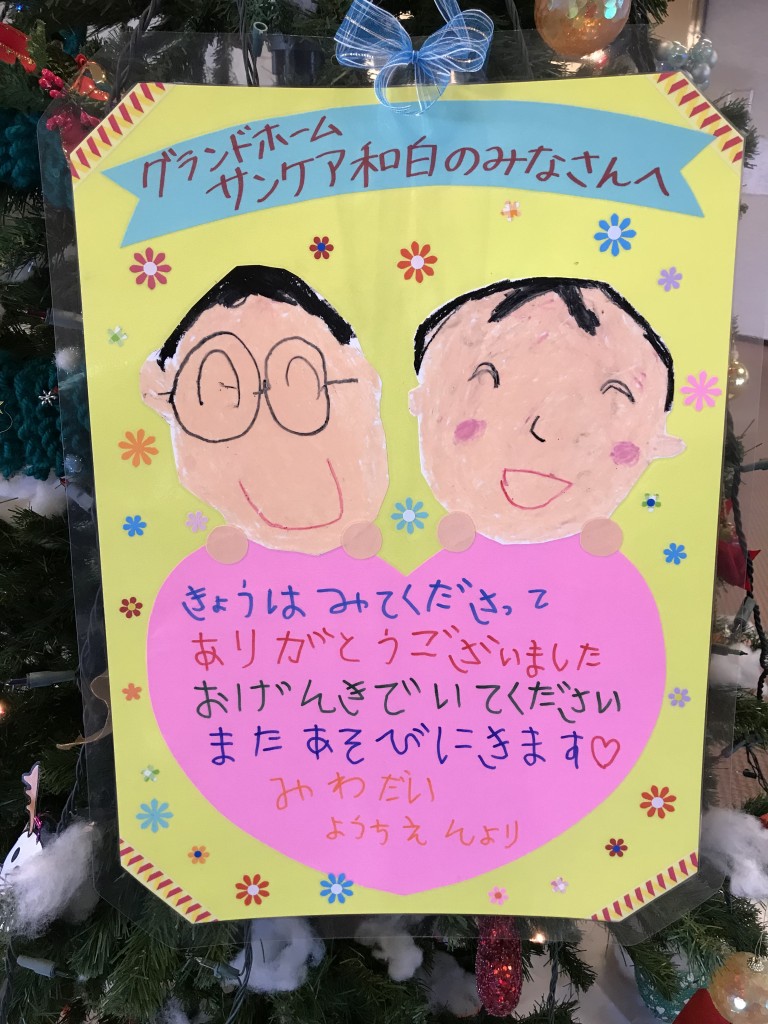 グランドホーム
サンケア和白のみなさんへ
きょうは みてくださって
ありがとうございました
おげんきでいてください
またあそびにきます♡
みわだい
ようちえんより